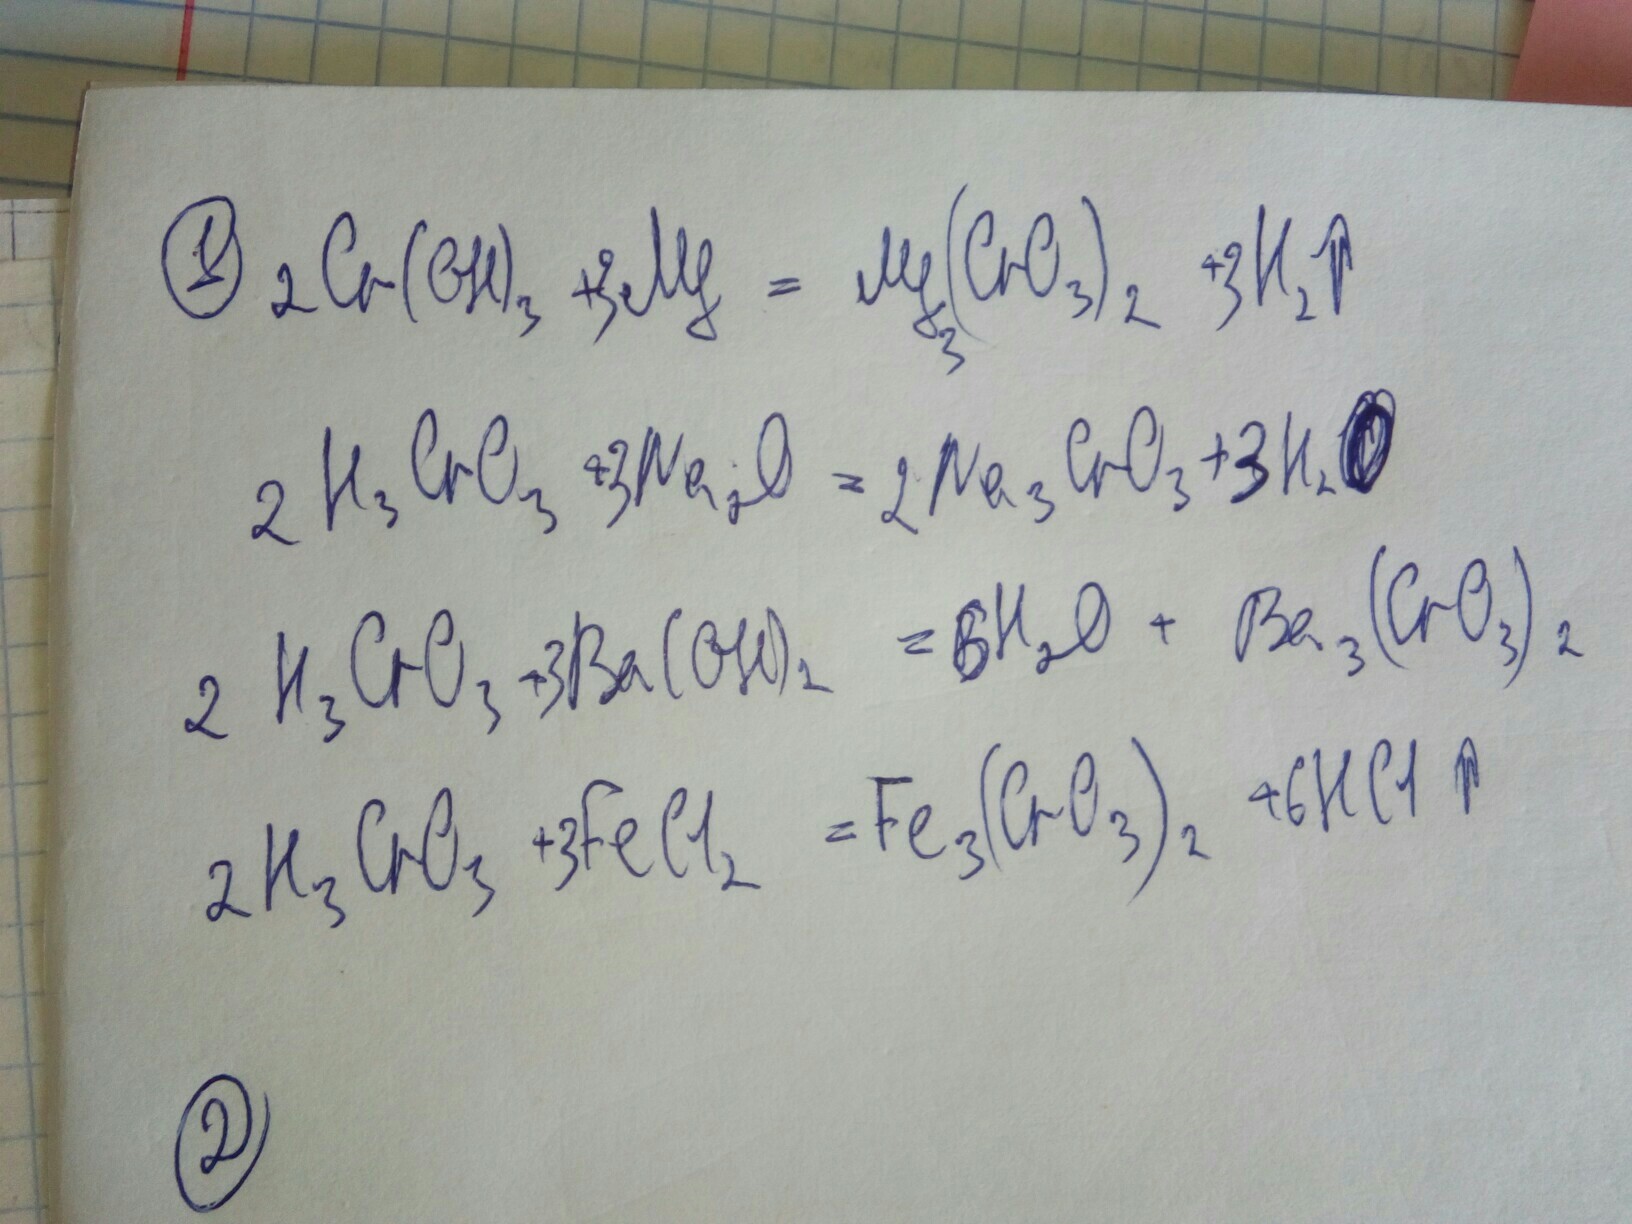 ① 2Cr(OH)₃ +3Mg = Mg₃(CrO₃)₂ +3H₂↑
2 H₃CrO₃ +3Na₂O = 2Na₃CrO₃ +3H₂O
2 H₃CrO₃ +3Ba(OH)₂ = 6H₂O + Ba₃(CrO₃)₂
2H₃CrO₃ +3FeCl₂ = Fe₃(CrO₃)₂ +6HCl↑
②